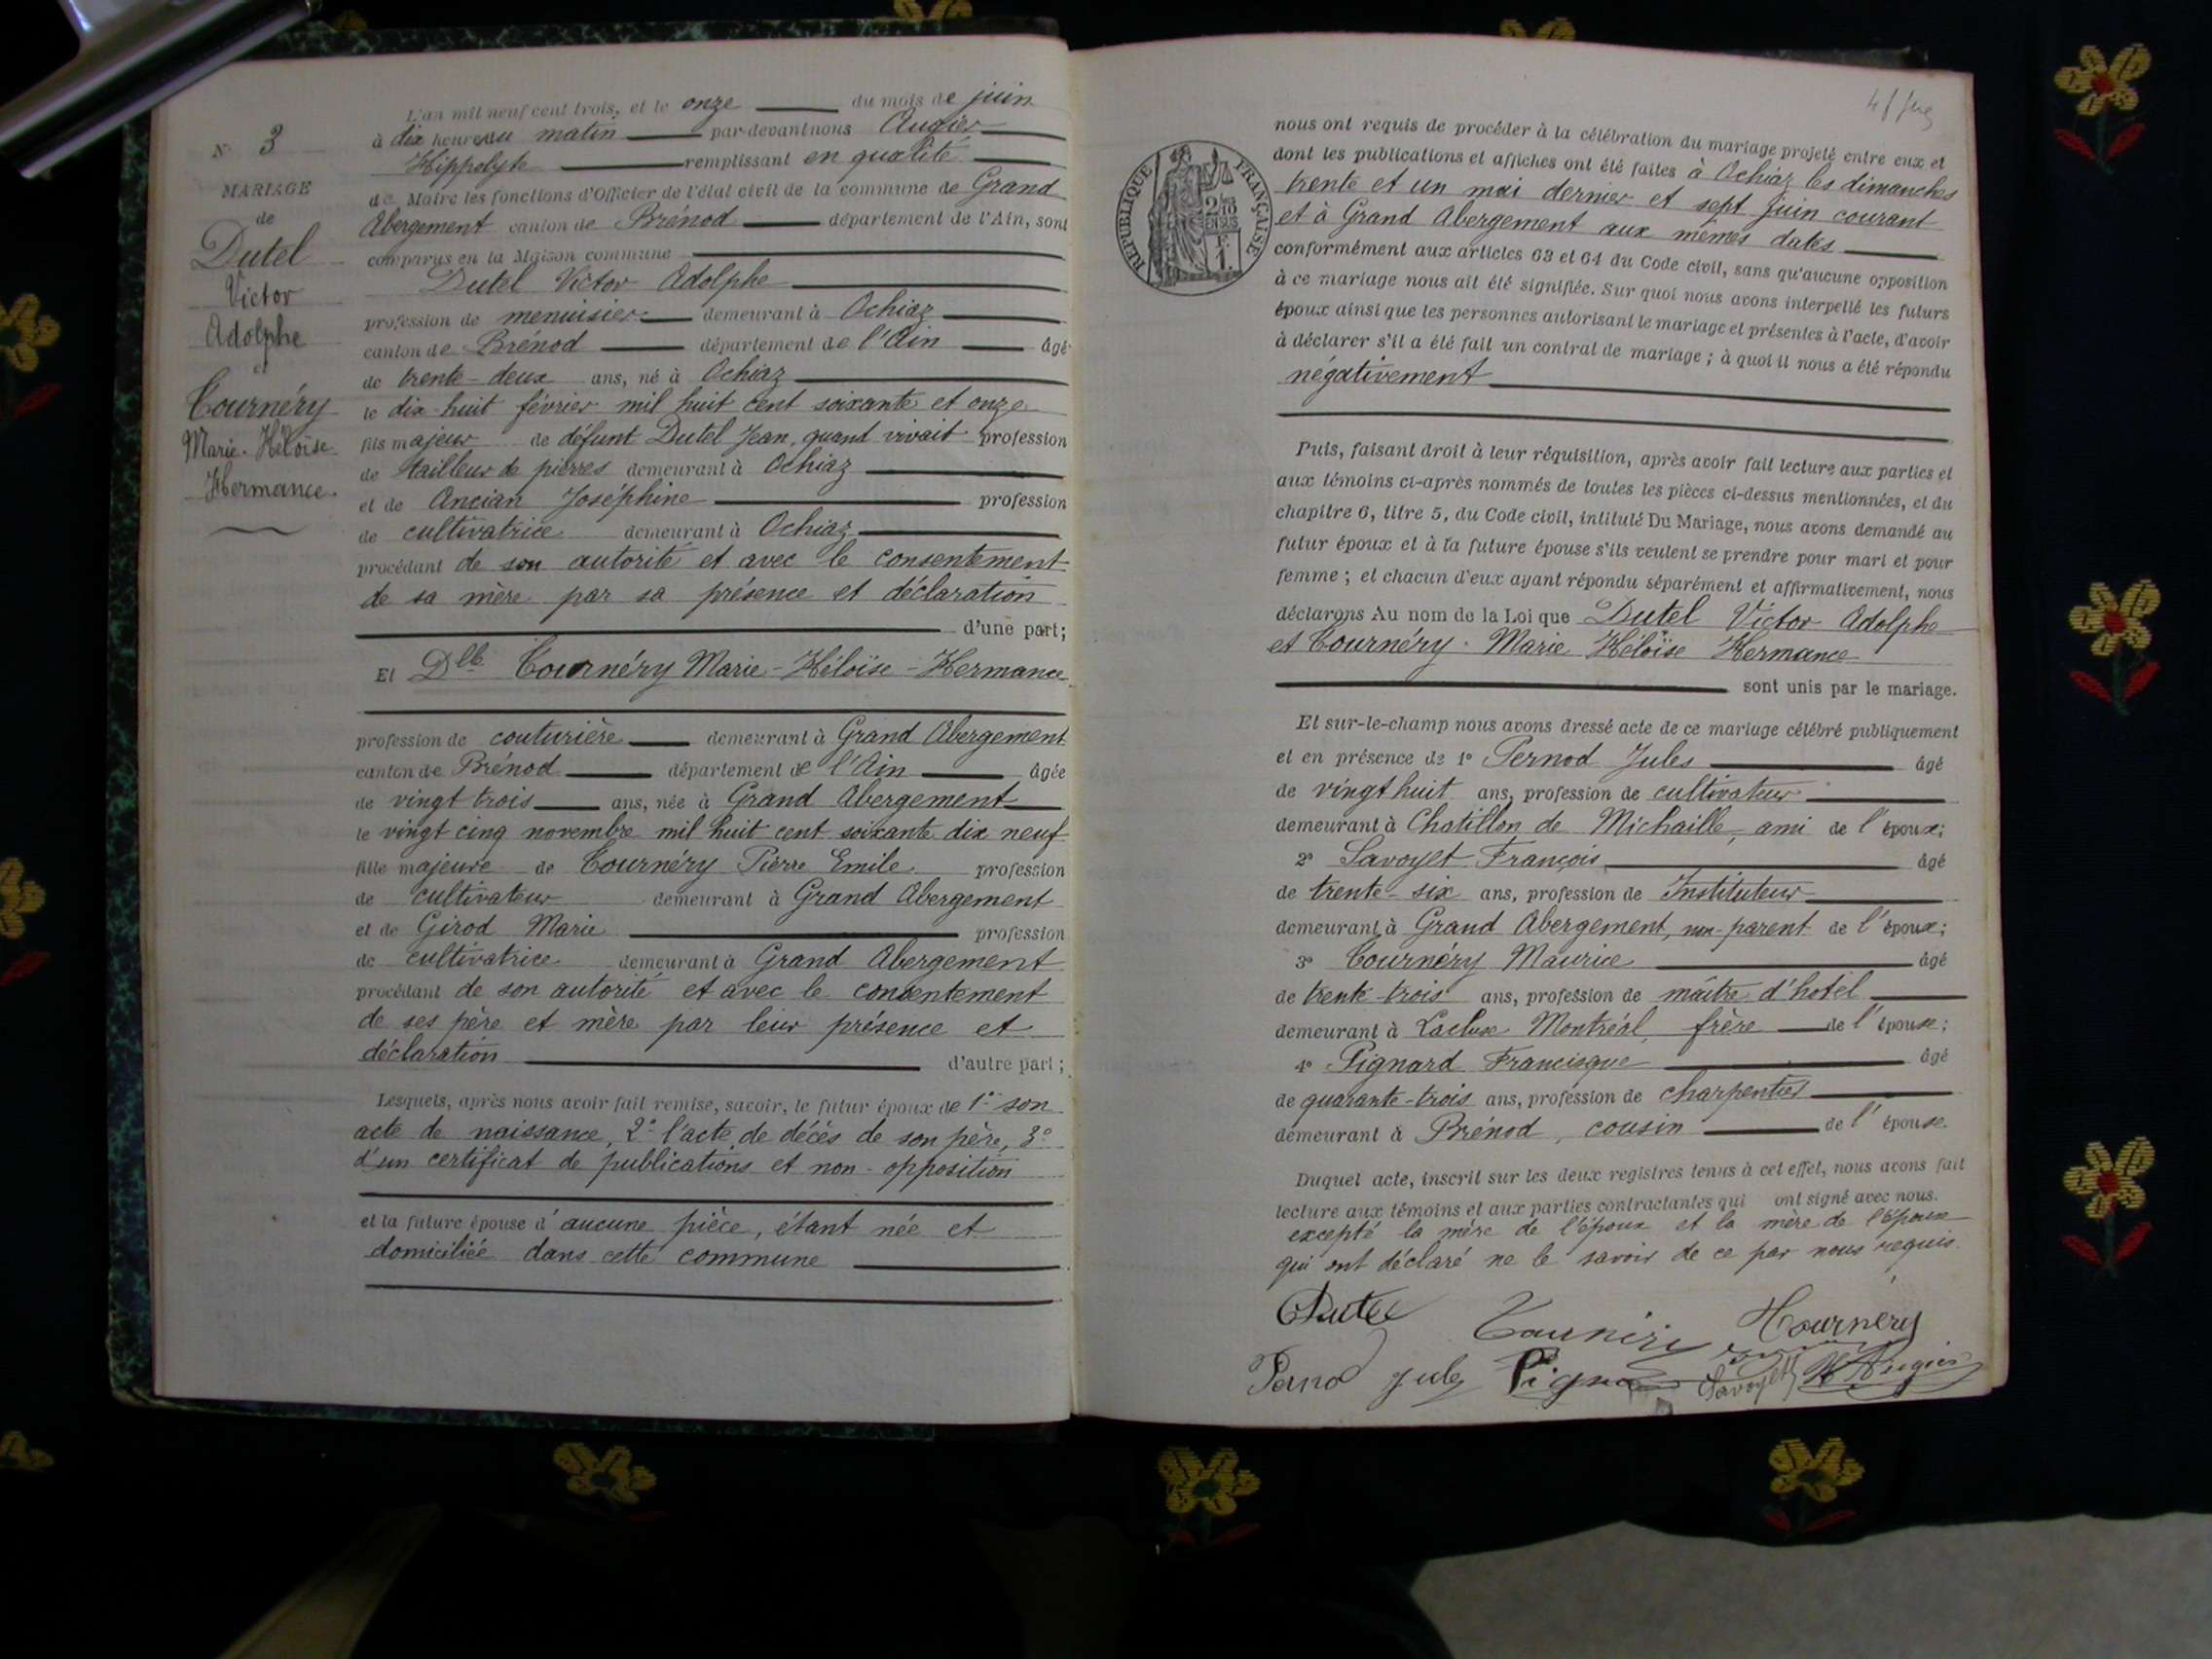 N° 3
MARIAGE
de
Dutel
Victor
Adolphe
et
Tournéry
Marie-Héloïse-
Hermance
L'an mil neuf cent trois, et le onze du mois de juin
à dix heures du matin par-devant nous Augier
Hippolyte remplissant en qualité
de Maire les fonctions d'Officier de l'état civil de la commune de Grand
Abergement canton de Brénod département de l'Ain, sont
comparus en la Maison commune
Dutel Victor Adolphe
profession de menuisier demeurant à Ochiaz
canton de Brénod département de l'Ain âgé
de trente-deux ans, né à Ochiaz
le dix-huit février mil huit cent soixante et onze
fils majeur de défunt Dutel Jean, quant vivait profession
de tailleur de pierres demeurant à Ochiaz
et de Ancian Joséphine profession
de cultivatrice demeurant à Ochiaz
procédant de son autorité et avec le consentement
de sa mère par sa présence et déclaration
d'une part;
Et Dlle Tournéry Marie-Héloïse-Hermance
profession de couturière demeurant à Grand Abergement
canton de Brénod département de l'Ain âgée
de vingt trois ans, née à Grand Abergement
le vingt cinq novembre mil huit cent soixante dix neuf
fille majeure de Tournéry Pierre Emile profession
de cultivateur demeurant à Grand Abergement
et de Girod Marie profession
de cultivatrice demeurant à Grand Abergement
procédant de son autorité et avec le consentement
de ses père et mère par leur présence et
déclaration d'autre part;
Lesquels, après nous avoir fait remise, savoir, le futur époux de 1° son
acte de naissance, 2° l'acte de décès de son père, 3°
d'un certificat de publications et non-opposition
et la future épouse d'aucune pièce, étant née et
domiciliée dans cette commune
REPUBLIQUE FRANÇAISE
nous ont requis de procéder à la célébration du mariage projeté entre eux et
dont les publications et affiches ont été faites à Ochiaz les dimanches
trente et un mai dernier et sept juin courant
et à Grand Abergement aux mêmes dates
conformément aux articles 63 et 64 du Code civil, sans qu'aucune opposition
à ce mariage nous ait été signifiée. Sur quoi nous avons interpellé les futurs
époux ainsi que les personnes autorisant le mariage et présentes à l'acte, d'avoir
à déclarer s'il a été fait un contrat de mariage; à quoi il nous a été répondu
négativement
Puis, faisant droit à leur réquisition, après avoir fait lecture aux parties et
aux témoins ci-après nommés de toutes les pièces ci-dessus mentionnées, et du
chapitre 6, titre 5, du Code civil, intitulé Du Mariage, nous avons demandé au
futur époux et à la future épouse s'ils veulent se prendre pour mari et pour
femme; et chacun d'eux ayant répondu séparément et affirmativement, nous
déclarons Au nom de la Loi que Dutel Victor Adolphe
et Tournéry Marie Héloïse Hermance
sont unis par le mariage.
Et sur-le-champ nous avons dressé acte de ce mariage célébré publiquement
et en présence de 1° Pernod Jules âgé
de vingt huit ans, profession de cultivateur
demeurant à Chatillon de Michaille, ami de l'époux;
2° Savoyet François âgé
de trente-six ans, profession de Instituteur
demeurant à Grand Abergement, non-parent de l'époux;
3° Tournéry Maurice âgé
de trente-trois ans, profession de maître d'hotel
demeurant à Lacluse Montréal, frère de l'épouse;
4° Pignard Francisque âgé
de quarante-trois ans, profession de charpentier
demeurant à Brénod, cousin de l'épouse.
Duquel acte, inscrit sur les deux registres tenus à cet effet, nous avons fait
lecture aux témoins et aux parties contractantes qui ont signé avec nous.
excepté la mère de l'époux et la mère de l'épouse
qui ont déclaré ne le savoir de ce par nous requis.
Dutel Tournéry HTournéry
Pernod jules Pignard Savoyet H Augier